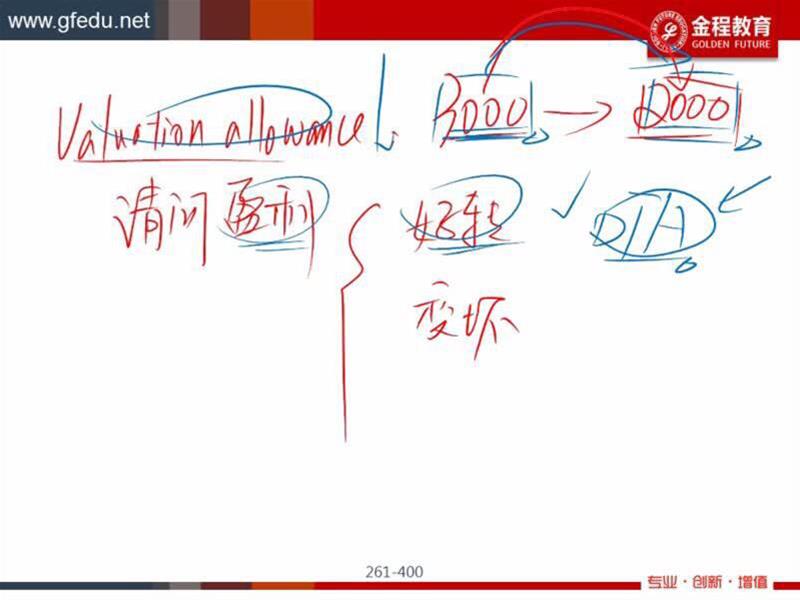 www.gfedu.net
金程教育
GOLDEN FUTURE
Valuation allowance ↓ 3000 → 2000
请问盈利 { 好转 ✓ DTA
变坏
261-400
专业·创新·增值